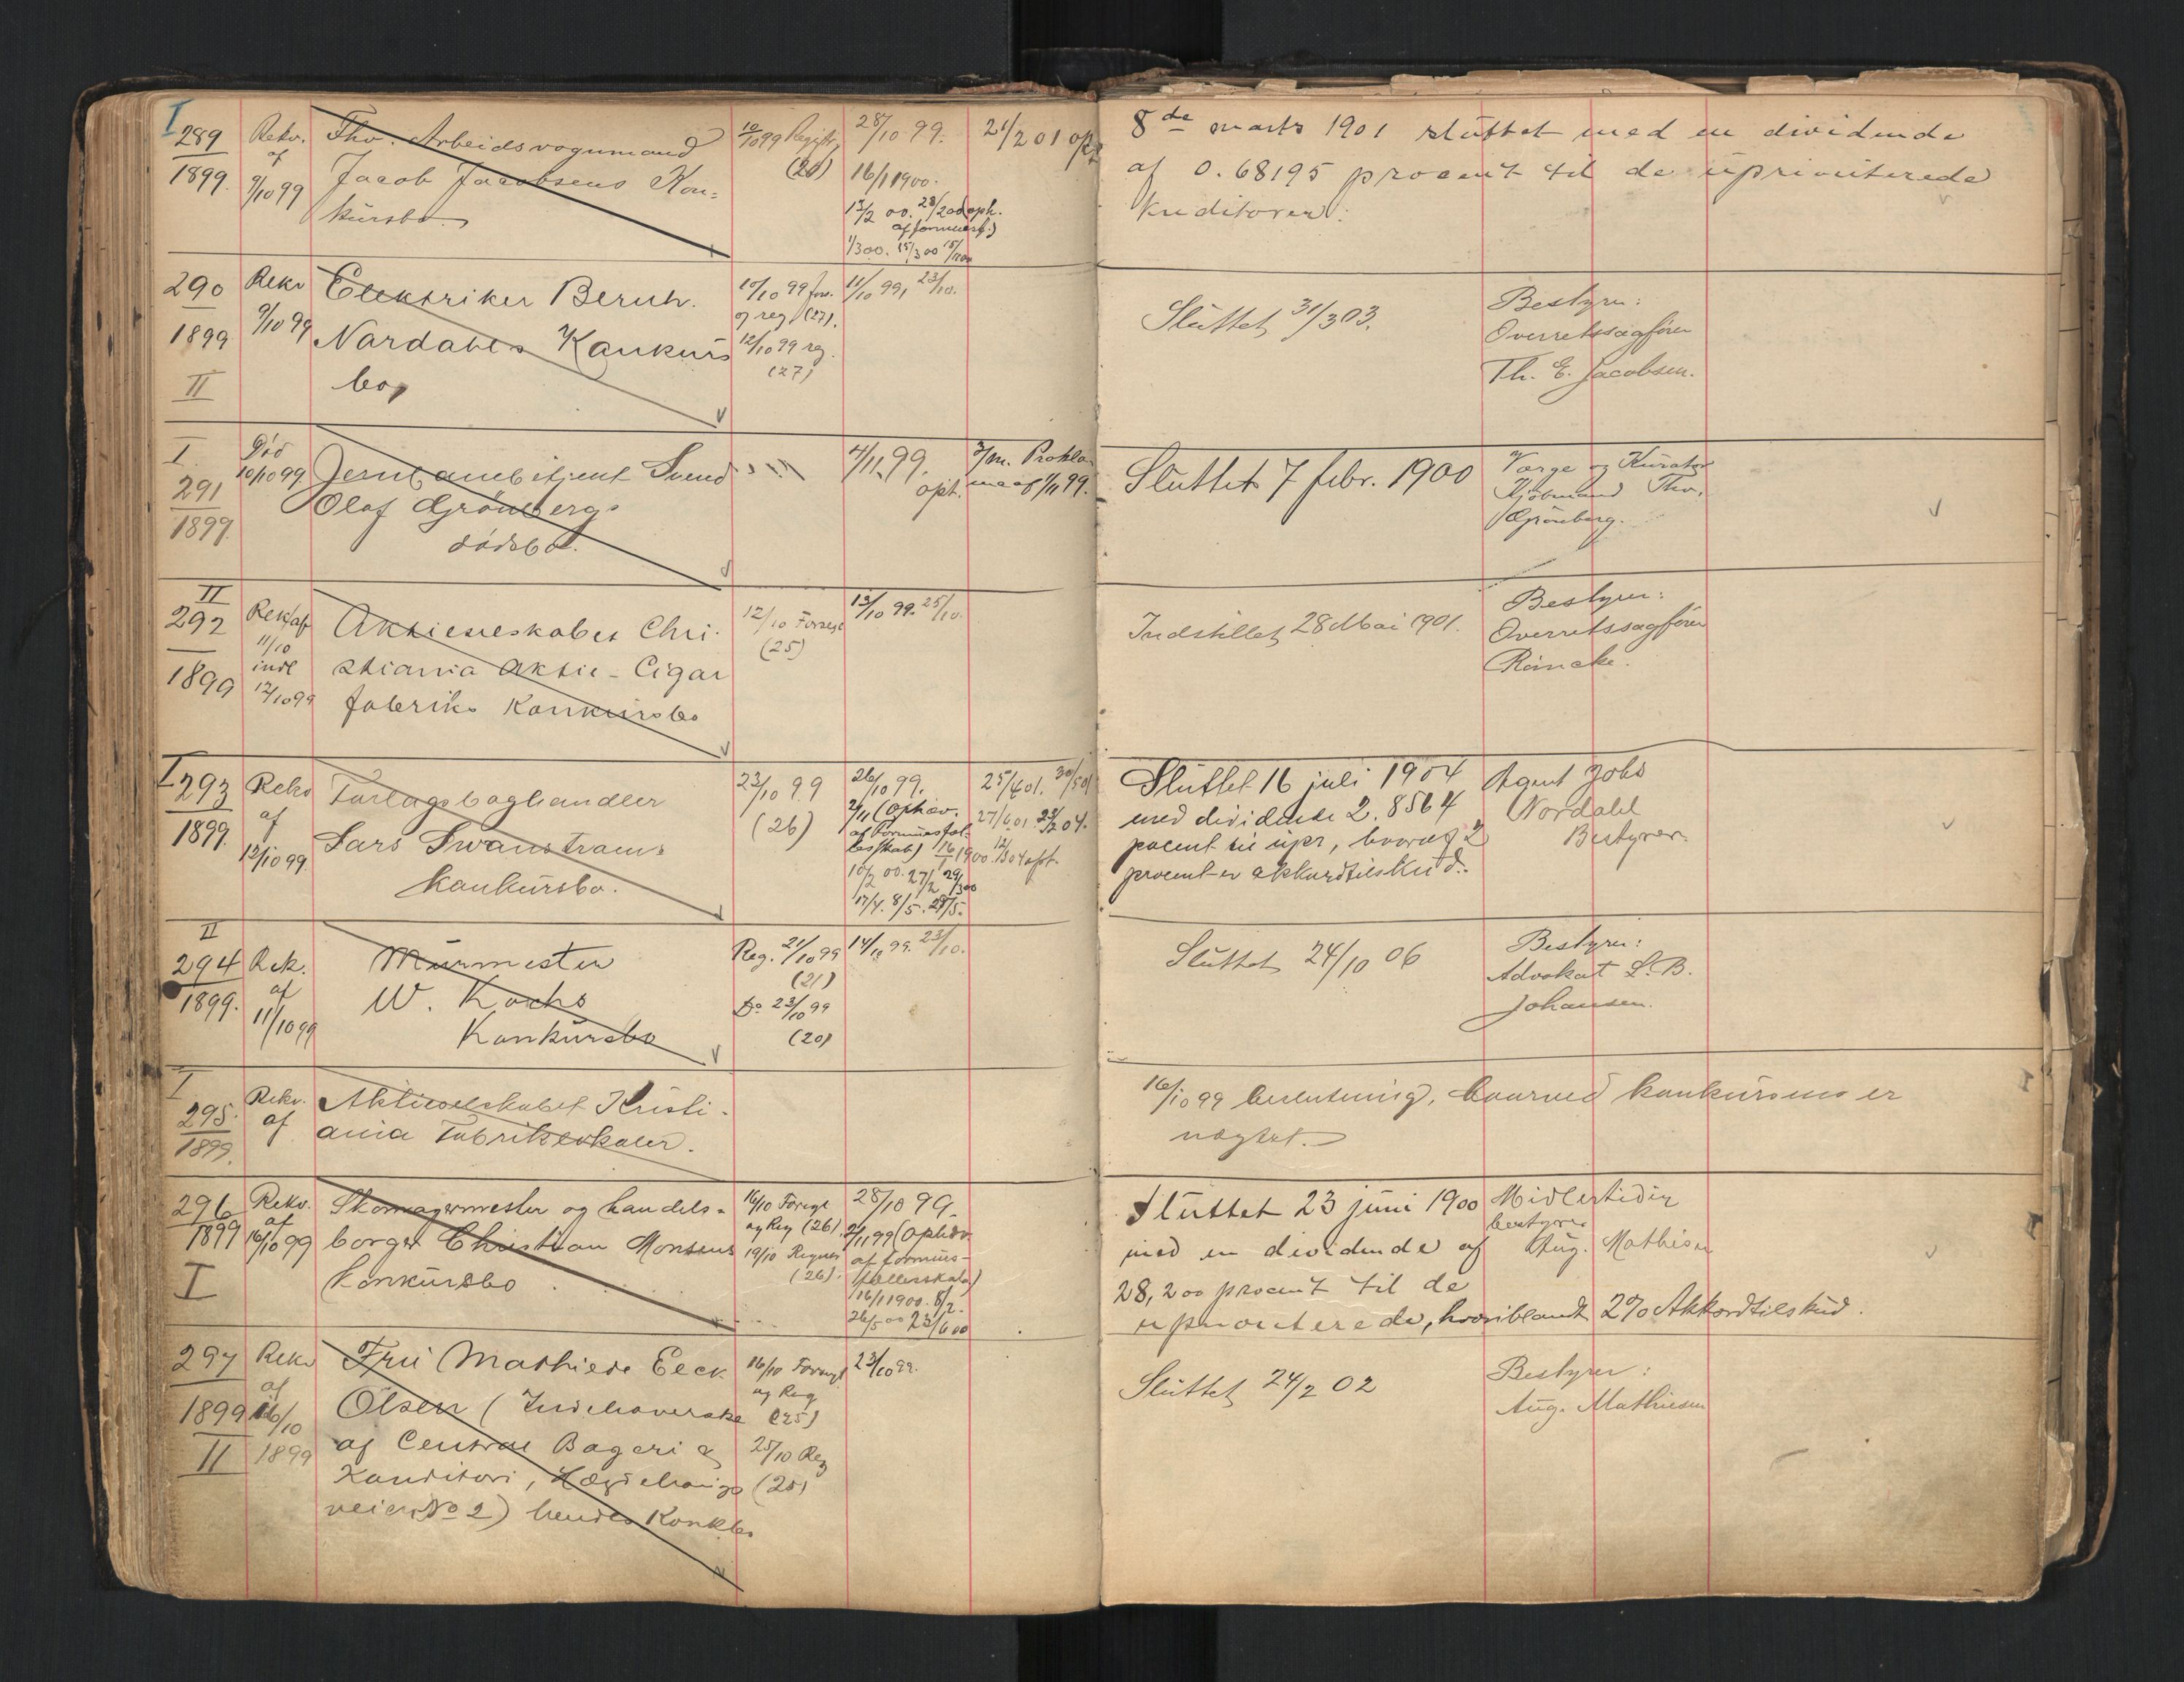 I
289
1899.
Rekv.
af
9/10 99
Thv. Arbeidsvognmand
Jacob Jacobsens Kon-
kursbo.
10/10 99 Registr.
(20)
28/10 99.
16/1 1900.
13/2 00. 28/2 00 oph.
af formuesf.)
1/3 00. 15/3 00
21/2 01 oph
8de marts 1901 sluttet med en dividende
af 0.68195 procent til de uprioriterede
kreditorer.
290
1899
II
Rekv
9/10 99
Elektriker Bernh.
Nordahls Konkurs
bo
10/10 99 for.
og reg (27).
12/10 99 reg.
(27)
11/10 99, 23/10.
Sluttet 31/3 03.
Bestyrer:
Overretssagfører
Th. E. Jacobsen.
I
291
1899.
Død
10/10 99
Jernbanebetjent Svend
Olaf Grönbergs
dödsbo.
4/11 99.
oph.
Prokla-
ma af 1/11 99.
Sluttet 7 febr. 1900
Værge og Kurator
Kjøbmand Thv.
Grönberg.
II
292
1899
Rekv af
11/10
indl
12/10 99
Aktieselskabet Chri-
stiania Aktie-Cigar
fabriks Konkursbo
12/10 Forsegl
(25)
13/10 99. 25/10.
Indstillet 28 Mai 1901.
Bestyrer:
Overretssagfører
Reincke.
I
293
1899.
Rekv
af
12/10 99.
Forlagsboghandler
Lars Swanstrøms
konkursbo.
23/10 99
(26)
26/10 99.
2/11 (Ophæv.
af formuesfæl-
lesskab) 16/1 1900
10/2 00. 27/2 29/3 00
17/4. 8/5. 29/5.
25/4 01. 30/5 01
27/6 01. 23/2 04.
12/3 04 oph.
Sluttet 16 juli 1904
med dividende 2.8564
procent til upr, hvoraf 2
procent er akkordtilskud.
Agent Johs
Nordahl
Bestyrer.
II
294
1899.
Rek.
af
11/10 99
Murmester
W. Kochs
Konkursbo
Reg. 21/10 99
(21)
Do 23/10 99
(20)
14/10 99. 23/10.
Sluttet 24/10 06
Bestyrer:
Advokat L. B.
Johansen.
I
295.
1899.
Rekv.
af
Aktieselskabet Kristi-
ania Fabriklokaler.
16/10 99 beslutning, hvorved konkursens er
nægtet.
296
1899
I
Rekv.
af
16/10 99
Skomagermester og handels-
borger Christian Monsens
konkursbo
16/10 Forsegl
og Reg (26).
19/10 Registr
(26).
28/10 99.
2/11 99 (Ophæv.
af formues-
fællesskab)
16/1 1900. 8/2.
26/5 00 23/6 00
Sluttet 23 juni 1900
med en dividende af
28,200 procent til de
uprioriterede, hvoriblandt 2% Akkordtilskud.
Midlertidig
bestyrer
Aug. Mathisen
297
1899
II
Rekv
af
16/10
1899
Fru Mathilde Eeck
Olsen (Indehaverske
af Central Bageri &
Konditori, Hægdehaugs
veien No 2) hendes Konkbo
16/10 Forsegl
og Reg
(25)
25/10 Reg
(25)
23/10 99.
Sluttet 24/2 02
Bestyrer:
Aug. Mathiesen